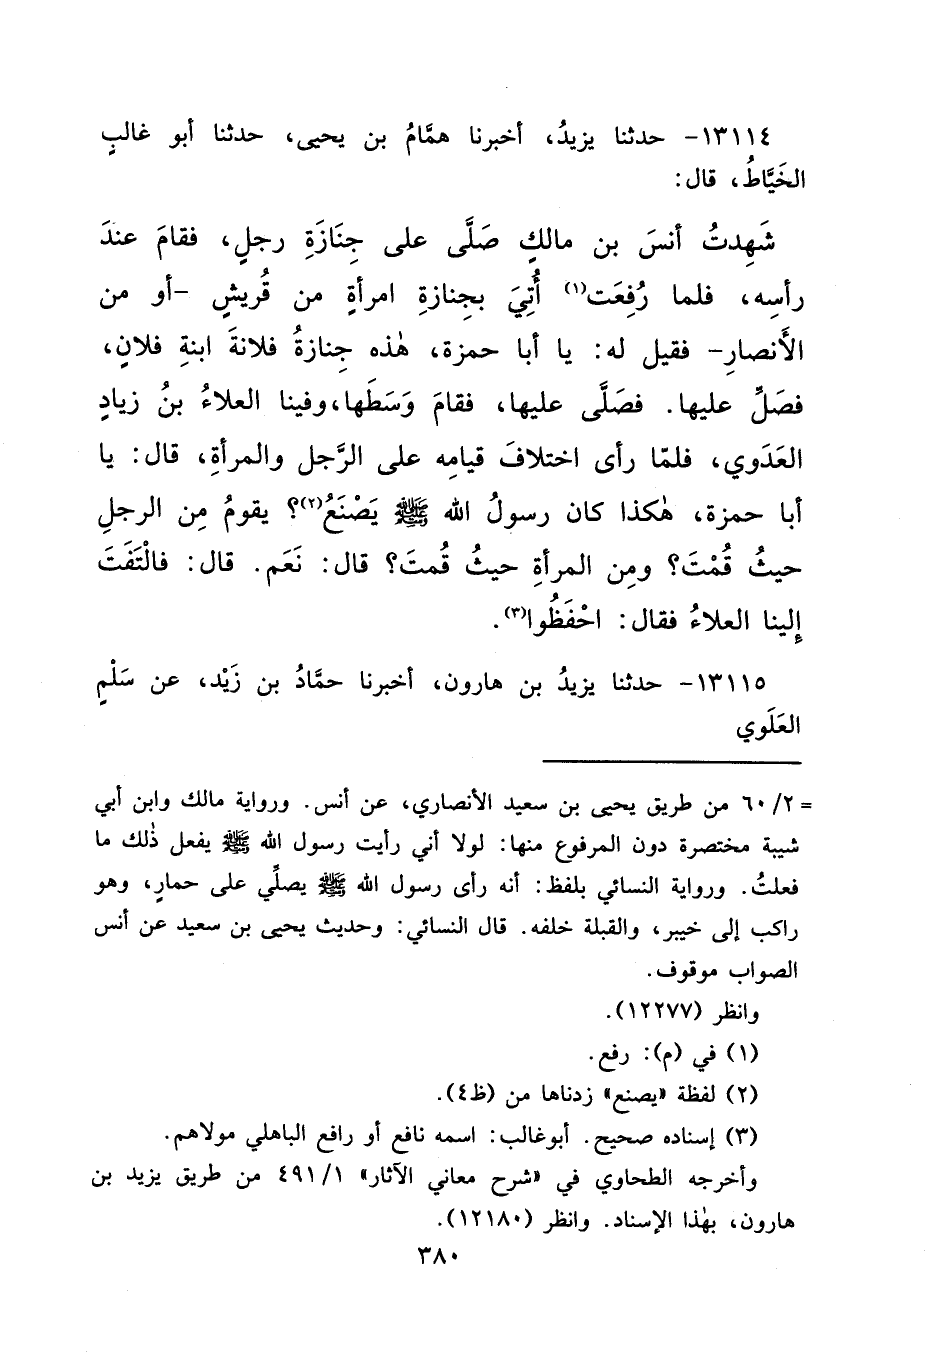 ١٣١١٤- حدثنا يزيدُ، أخبرنا همَّامُ بن يحيى، حدثنا أبو غالبٍ
الخَيَّاطُ، قال:
شَهِدتُ أنسَ بن مالكٍ صَلَّى على جِنَازَةِ رجلٍ، فقامَ عندَ
رأسِه، فلما رُفِعَت(١) أُتِيَ بجِنازةِ امرأةٍ من قُريشٍ -أو من
الأَنصارِ- فقيل له: يا أبا حمزة، هٰذه جِنازةُ فلانةَ ابنةِ فلانٍ،
فصَلِّ عليها. فصَلَّى عليها، فقامَ وَسَطَها، وفينا العلاءُ بنُ زيادٍ
العَدَوي، فلمّا رأى اختلافَ قيامِه على الرَّجل والمرأةِ، قال: يا
أبا حمزة، هٰكذا كان رسولُ الله ﷺ يَصْنَعُ(٢)؟ يقومُ مِن الرجلِ
حيثُ قُمْتَ؟ ومِن المرأةِ حيثُ قُمتَ؟ قال: نَعَم. قال: فالْتَفَتَ
إِلينا العلاءُ فقال: احْفَظُوا(٣).
١٣١١٥- حدثنا يزيدُ بن هارون، أخبرنا حمَّادُ بن زَيْد، عن سَلْمٍ
العَلَوي
= ٦٠/٢ من طريق يحيى بن سعيد الأنصاري، عن أنس. ورواية مالك وابن أبي
شيبة مختصرة دون المرفوع منها: لولا أني رأيت رسول الله ﷺ يفعل ذٰلك ما
فعلتُ. ورواية النسائي بلفظ: أنه رأى رسول الله ﷺ يصلِّي على حمارٍ، وهو
راكب إلى خيبر، والقبلة خلفه. قال النسائي: وحديث يحيى بن سعيد عن أنس
الصواب موقوف.
وانظر (١٢٢٧٧).
(١) في (م): رفع.
(٢) لفظة «يصنع» زدناها من (ظ٤).
(٣) إسناده صحيح. أبوغالب: اسمه نافع أو رافع الباهلي مولاهم.
وأخرجه الطحاوي في «شرح معاني الآثار» ٤٩١/١ من طريق يزيد بن
هارون، بهٰذا الإسناد. وانظر (١٢١٨٠).
٣٨٠